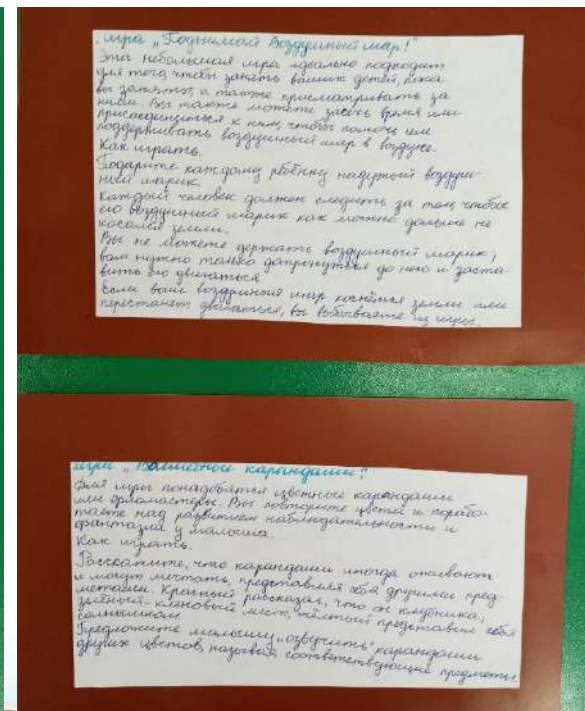 Игра „Поднимай Воздушный шар!"
Эта небольшая игра идеально подходит
для того, чтобы занять ваших детей, пока
вы заняты, а также присматривать за
ними. Вы также можете засечь время или
присоединиться к ним, чтобы помочь им
поддерживать воздушный шар в воздухе.
Как играть.
Подарите каждому ребёнку надутый воздуш-
ный шарик.
Каждый человек должен следить за тем, чтобы
его воздушный шарик как можно дольше не
касался земли.
Вы не можете держать воздушный шарик,
вам нужно только дотронуться до него и заста-
вить его двигаться.
Если ваш воздушный шар коснётся земли или
перестанет двигаться, вы выбываете из игры.
Игра „Волшебные карандаши"
Для игры понадобятся цветные карандаши
или фломастеры. Вы повторите цвета и порабо-
таете над развитием наблюдательности и
фантазии у малыша.
Как играть.
Расскажите, что карандаши иногда оживают
и могут мечтать, представляя себя другими пред-
метами. Красный рассказал, что он клубника,
зелёный - кленовый лист, жёлтый представил себя
солнышком.
Предложите малышу „озвучить" карандаши
других цветов, называя соответствующие предметы.